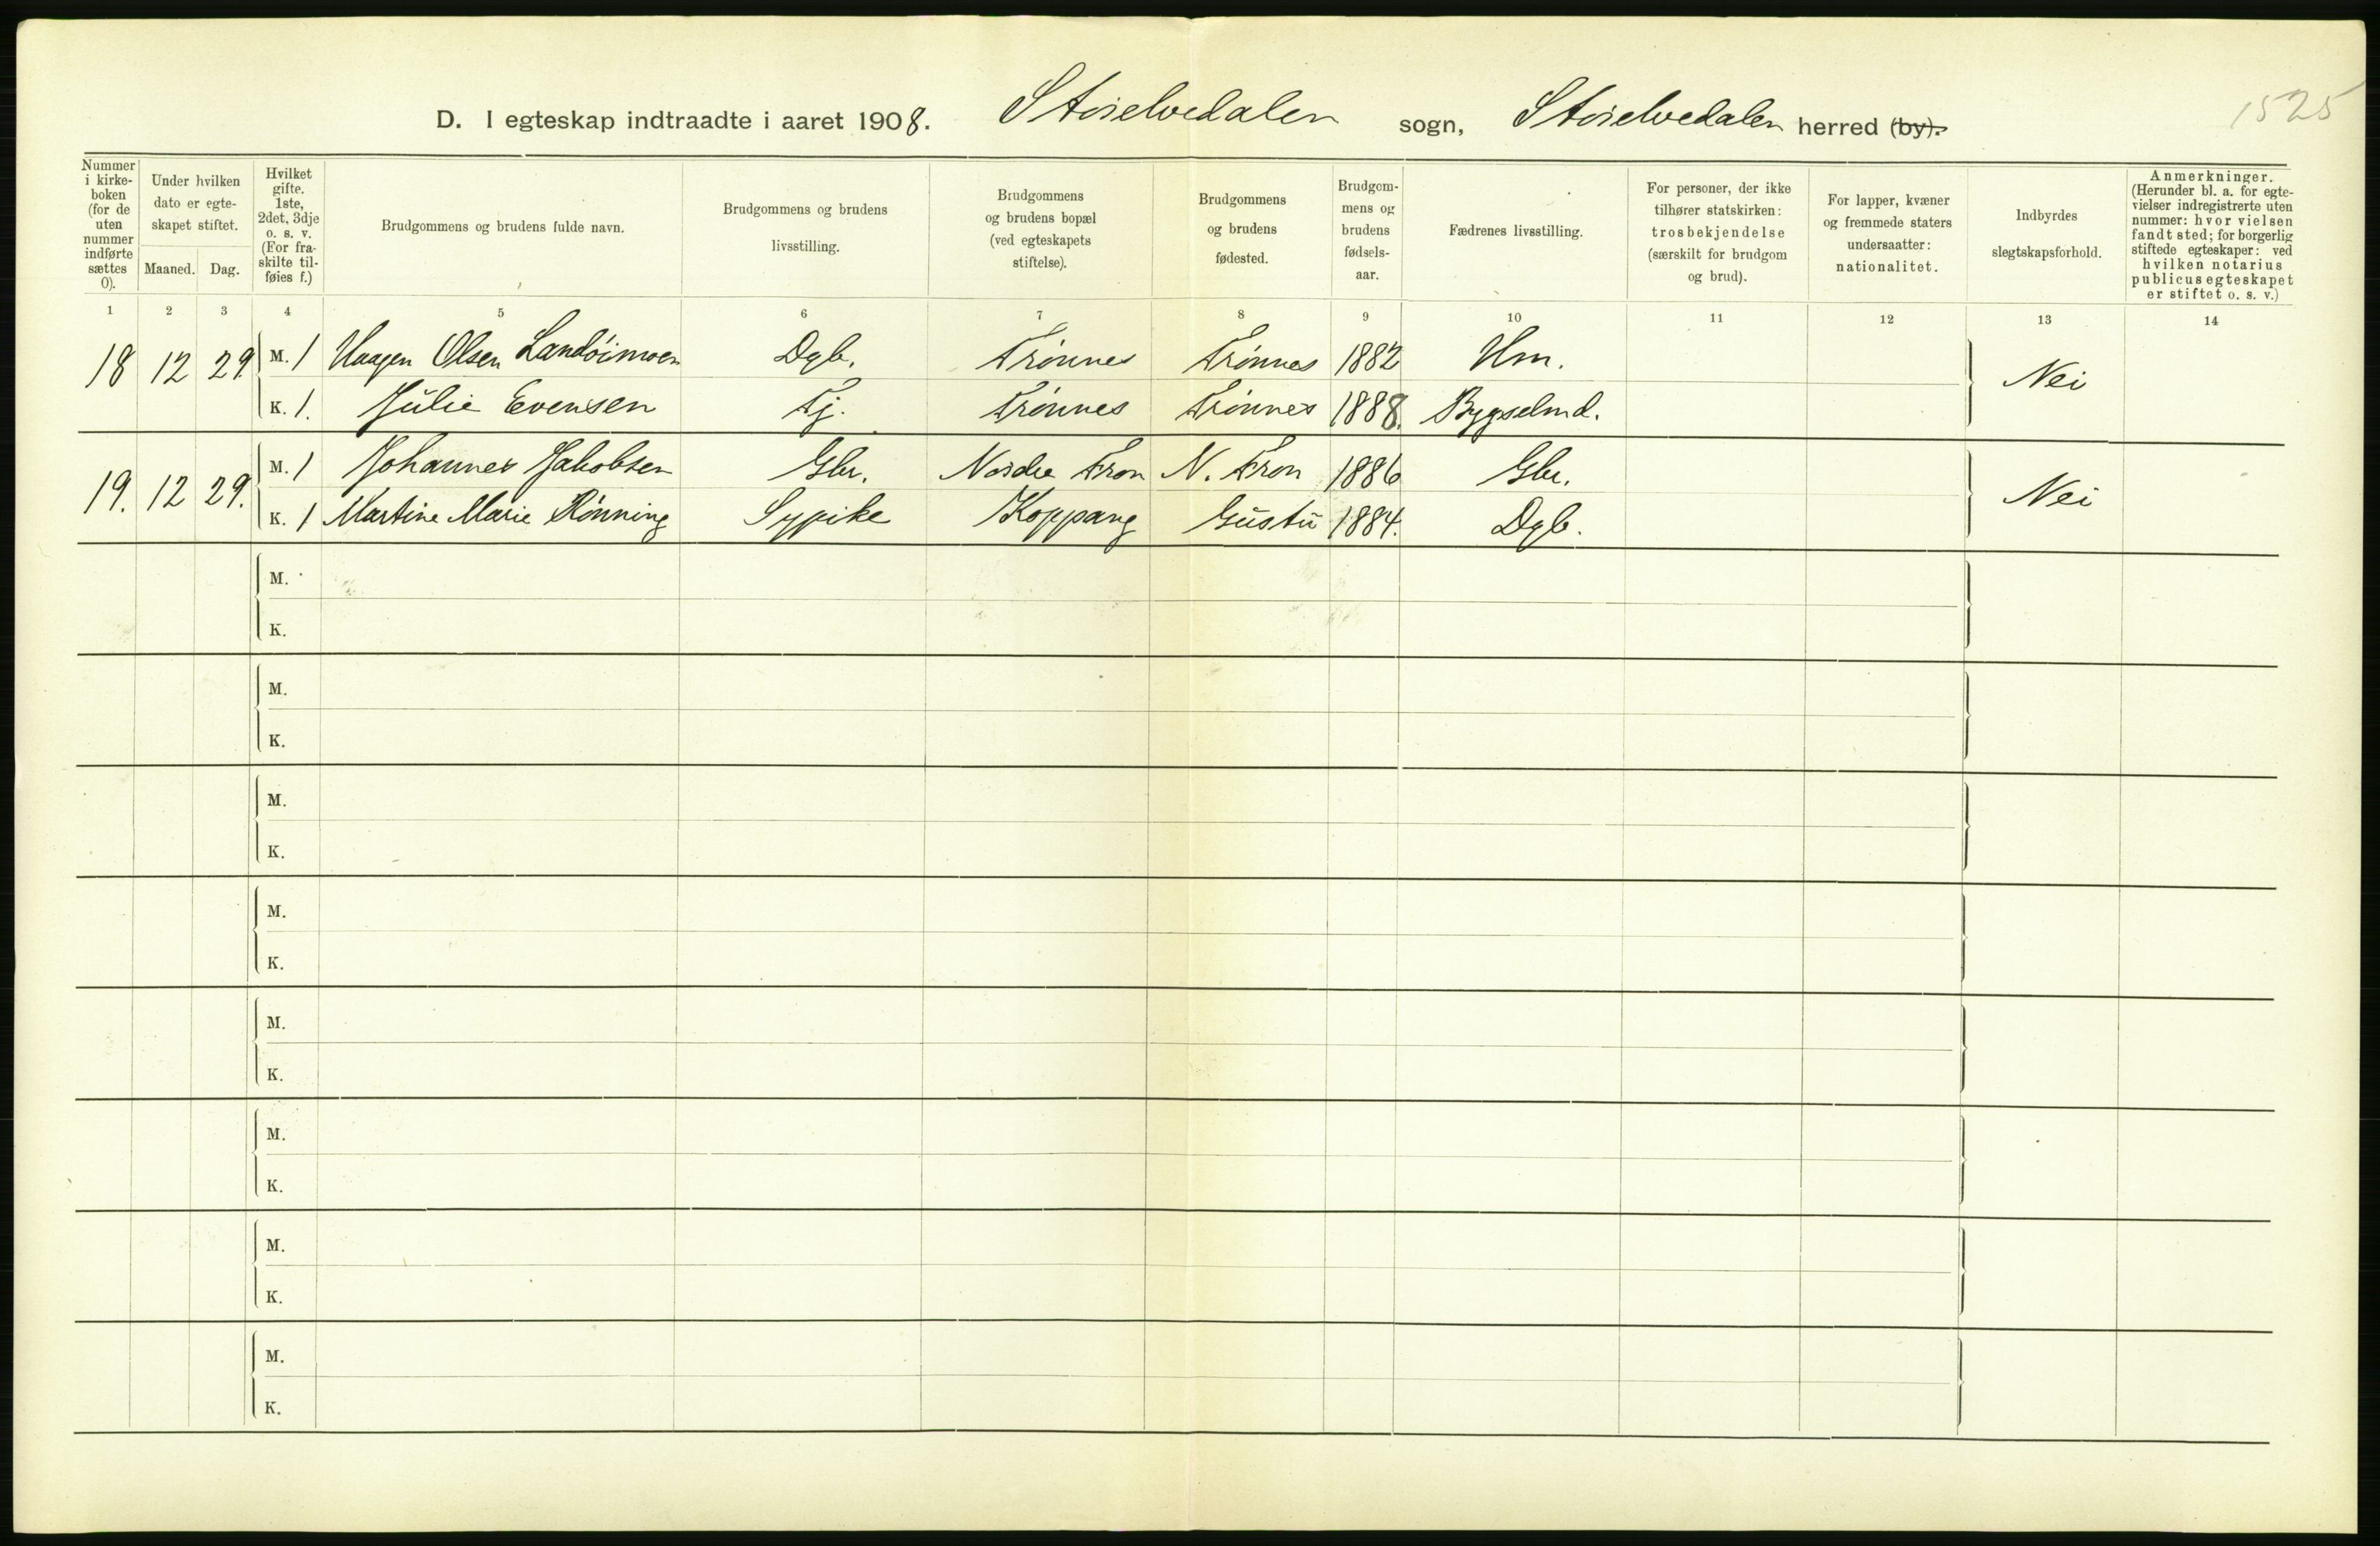 1525
D. I egteskap indtraadte i aaret 1908. Storelvedalen sogn, Storelvedalen herred (by).
Nummer i kirke-boken (for de uten nummer indførte sættes 0).
Under hvilken dato er egte-skapet stiftet.
Maaned. Dag.
Hvilket gifte. 1ste, 2det, 3dje o. s. v. (For fra-skilte til-føies f.)
Brudgommens og brudens fulde navn.
Brudgommens og brudens livsstilling.
Brudgommens og brudens bopæl (ved egteskapets stiftelse).
Brudgommens og brudens fødested.
Brudgom-mens og brudens fødsels-aar.
Fædrenes livsstilling.
For personer, der ikke tilhører statskirken: trosbekjendelse (særskilt for brudgom og brud).
For lapper, kvæner og fremmede staters undersaatter: nationalitet.
Indbyrdes slegtskapsforhold.
Anmerkninger. (Herunder bl. a. for egte-vielser indregistrerte uten nummer: hvor vielsen fandt sted; for borgerlig stiftede egteskaper: ved hvilken notarius publicus egteskapet er stiftet o. s. v.)
1 2 3 4 5 6 7 8 9 10 11 12 13 14
18 12 29. M. 1 Haagen Olsen Landöimoen Dgb. Trönnes Trönnes 1882 Hm. Nei
K. 1. Julie Evensen Tj. Trönnes Trönnes 1888. Bygselmd.
19. 12 29. M. 1 Johannes Jakobsen Gbr. Nordre Fron N. Fron 1886 Gbr. Nei
K. 1 Martine Marie Rönning Sypike Koppang Gustu 1884. Dgb.
M.
K.
M.
K.
M.
K.
M.
K.
M.
K.
M.
K.
M.
K.
M.
K.